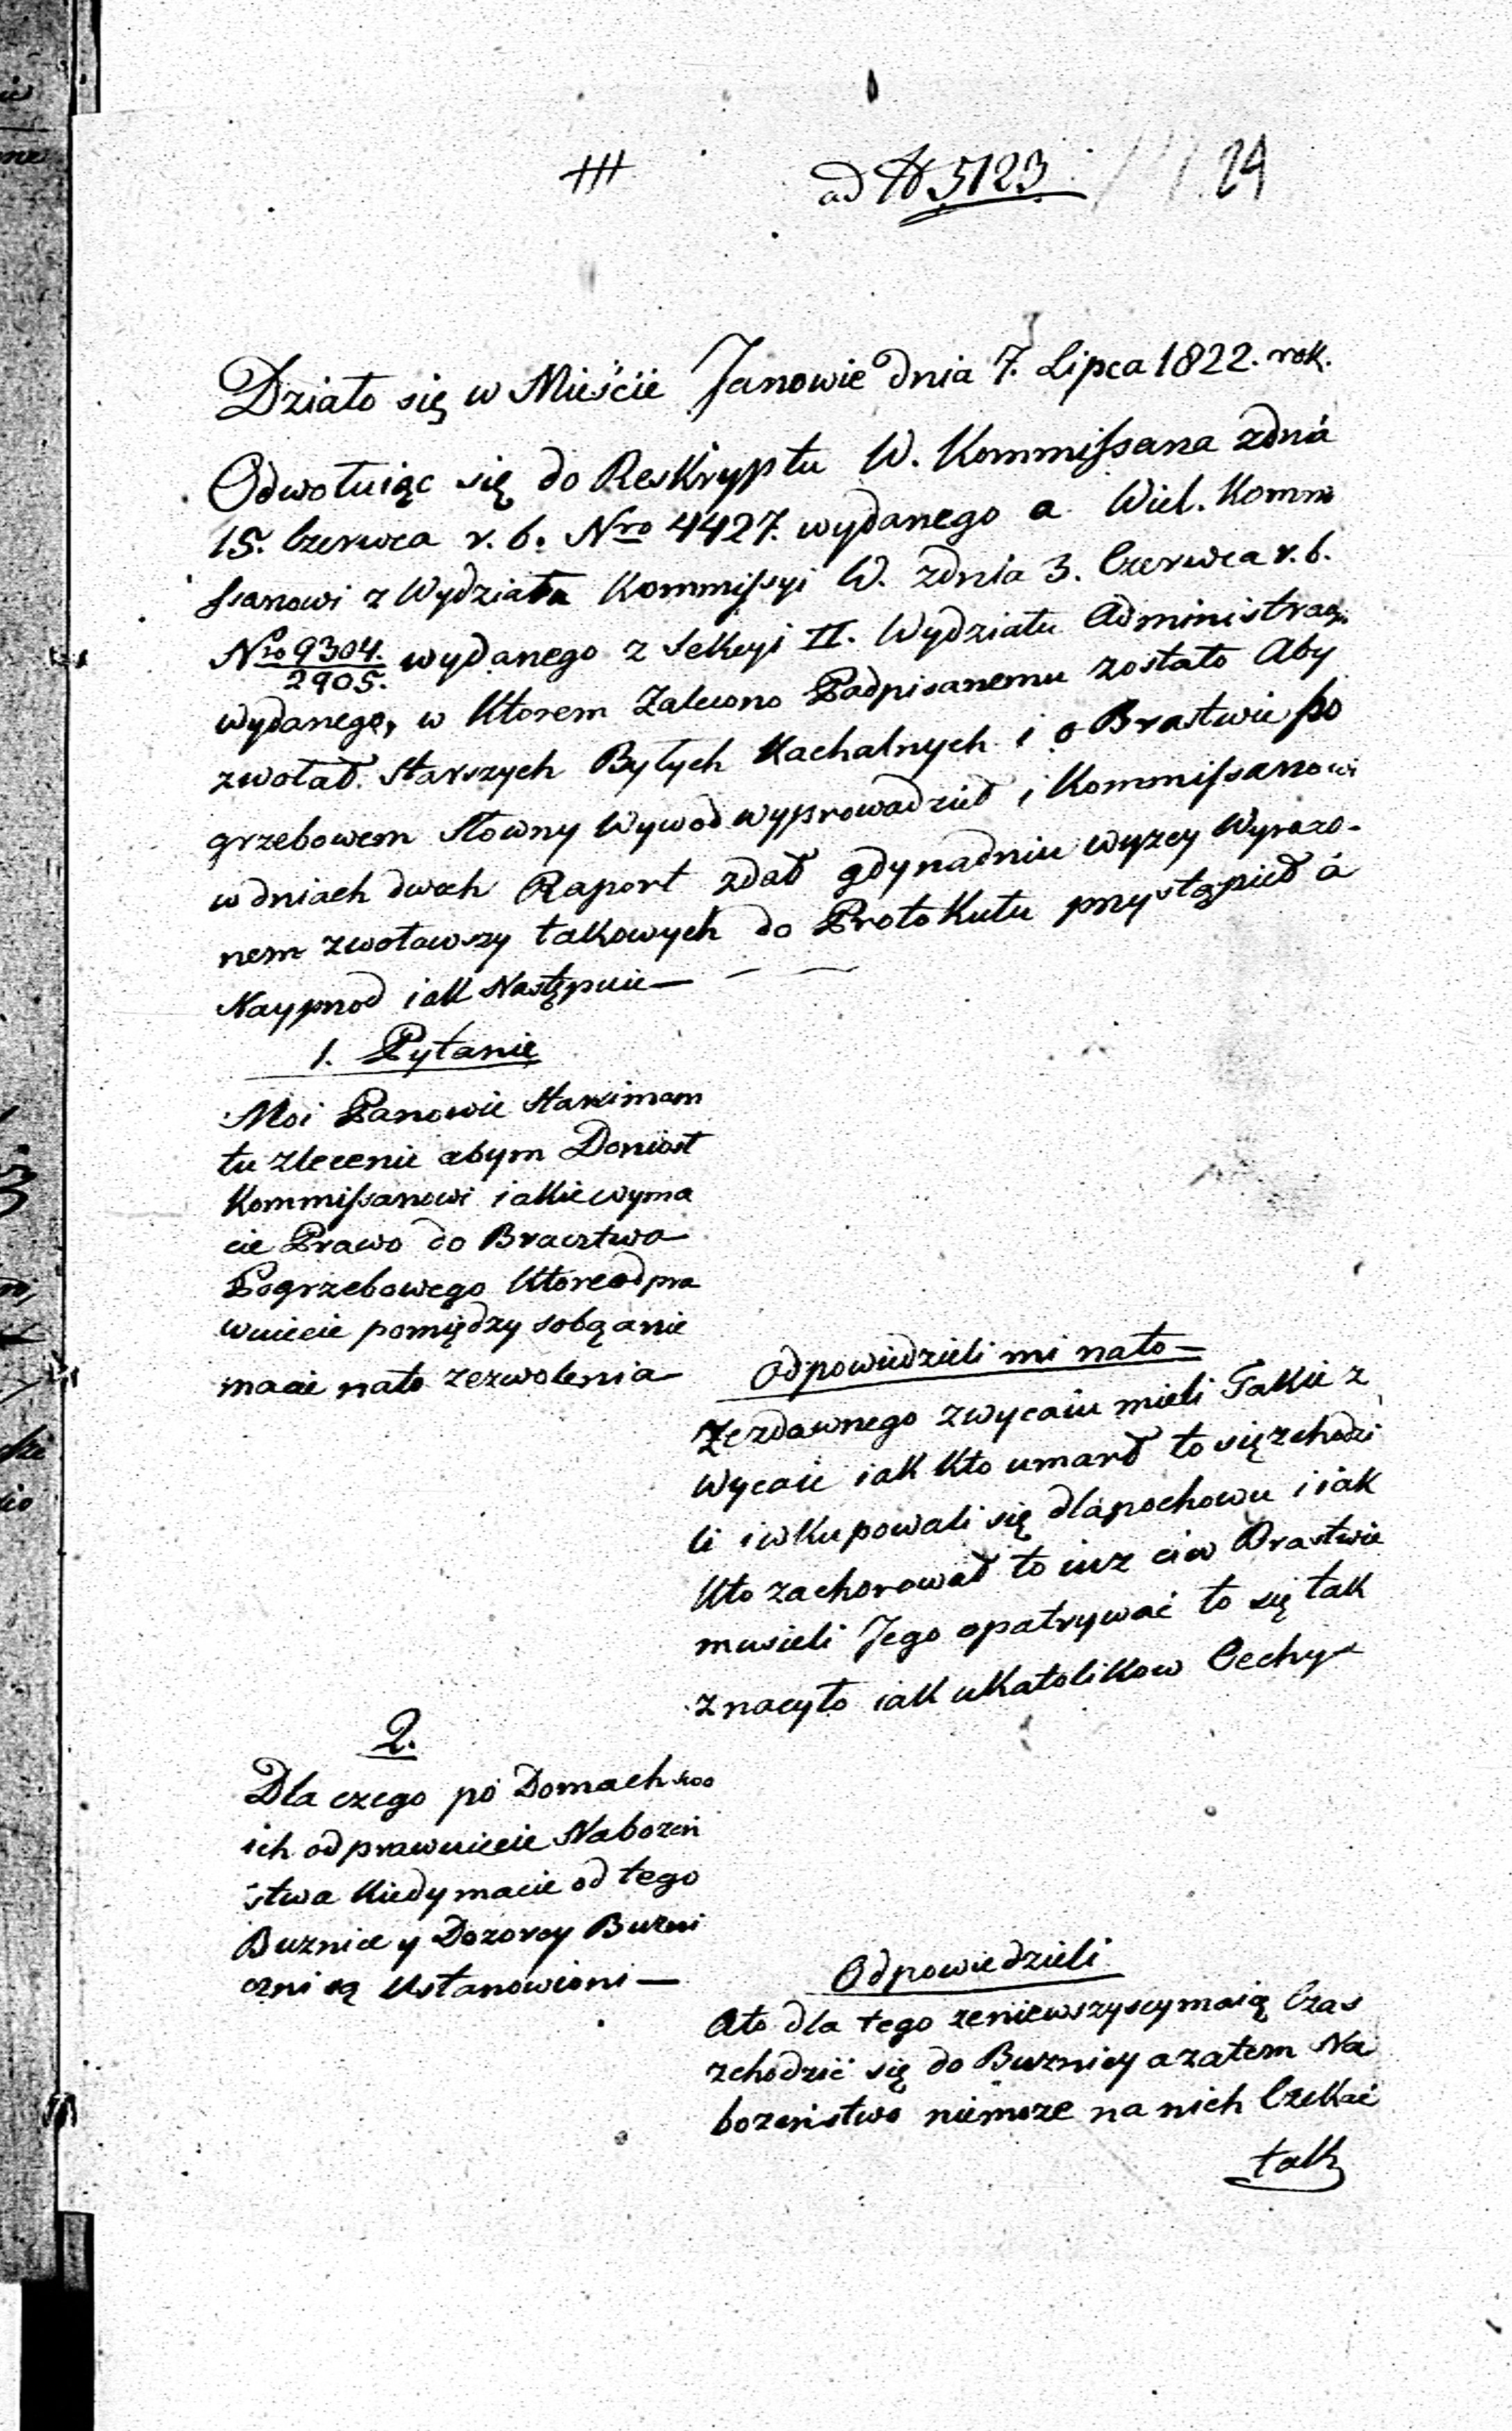 ad N 5123
29
Działo się w Mieście Janowie dnia 7. Lipca 1822. rok.
Odwołuiąc się do Reskryptu W. Kommissarza zdnia
15. Czerwca r. b. Nro 4427. wydanego a Wiel. Kommi
ssarzowi z Wydziału Kommissyi W. zdnia 3. Czerwca r. b.
Nro 9304./2905. wydanego z Sekcyi II. Wydziału Administrac.
wydanego, w Ktorem Zalecono Podpisanemu zostało Aby
zwołał Starszych Byłych Kachalnych i o Brastwie po
grzebowem Słowny Wywod wyprowadził i Kommissarzowi
w dniach dwoch Raport zdał gdy nadniu wyzey Wyrazo-
nem zwoławszy takowych do Protokułu przystąpił á
Nayprzod iak Następuie—
1. Pytanie
Moi Panowie Starsi mam
tu zlecenie abym Doniosł
Kommissarzowi iakie wy ma
cie Prawo do Bractwa
Pogrzebowego Ktore odpra
wuiecie pomiędzy sobą a nie
macie nato zezwolenia—
Odpowiedzieli mi nato—
Ze zdawnego zwycaiu mieli Takie z
wycaie iak Kto umarł to się zchodzi
li i wkupowali się dla pochowu i iak
Kto zachorował to iuz ci w Brastwie
musieli Jego opatrywać to się tak
znacyło iak u Katolikow Cechy
2.
Dla czego po Domach swo
ich odprawuiecie Nabozeń
stwa Kiedy macie od tego
Buznice y Dozorcy Buzni
czni są Ustanowieni—
Odpowiedzieli
Ato dla tego ze nie wszyscy maią Czas
zchodzić się do Buznicy a zatem Na
bozeństwo nie moze na nich Czekać
tak